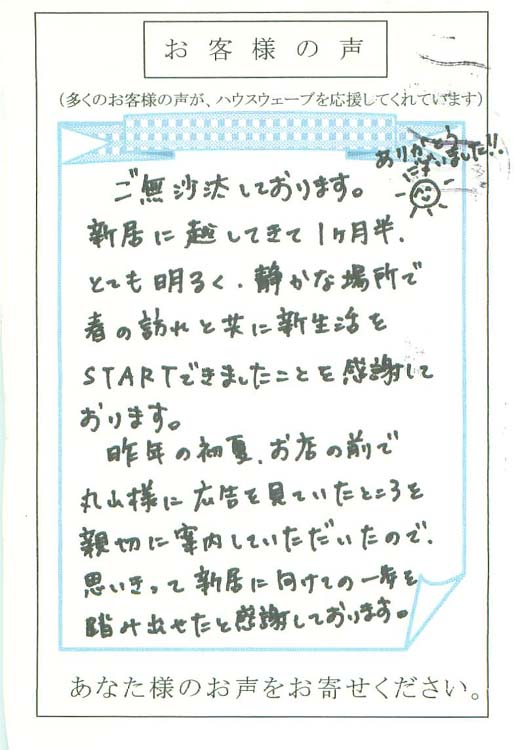 お客様の声
(多くのお客様の声が、ハウスウェーブを応援してくれています)
ありがとう
ございました!!
ご無沙汰しております。
新居に越してきて1ヶ月半、
とても明るく、静かな場所で
春の訪れと共に新生活を
STARTできましたことを感謝して
おります。
昨年の初夏、お店の前で
丸山様に広告を見ていたところを
親切に案内していただいたので、
思いきって新居に向けての一歩を
踏み出せたと感謝しております。
あなた様のお声をお寄せください。